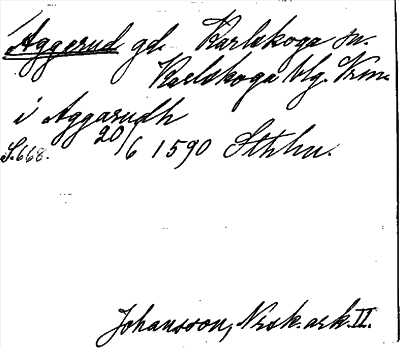 Aggerud gd. Karlskoga sn.
Karlskoga blg. Vrm.
i Aggarudh
S. 668. 20/6 1590 Sthhu.
Johansson, Nrsk. ark. II.